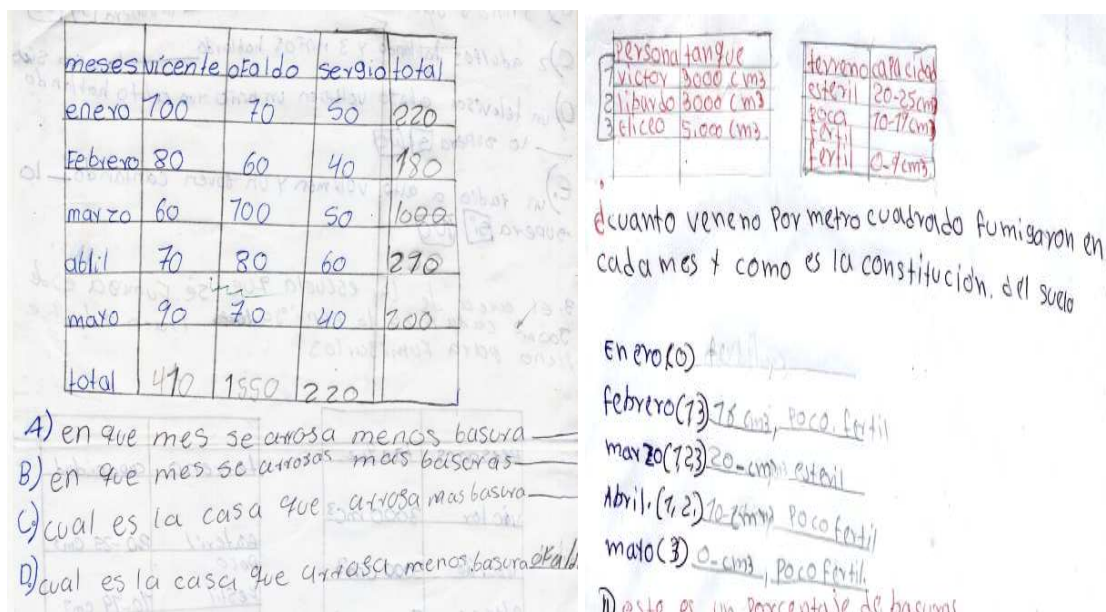 meses vicente ofaldo sergio total
enero 100 70 50 220
Febrero 80 60 40 180
marzo 60 100 50
ablil 70 80 60 210
mayo 90 70 40 200
total 410 220
A) en que mes se arrosa menos basura
B) en que mes se arrosas mas basuras
C) cual es la casa que arrosa mas basura
D) cual es la casa que arrosa menos basura
persona tanque
1 victor 3000 cm3
2 libardo 3000 cm3
3 Eliceo 5.000 cm3
terreno capacidad
esteril 20-25cm3
poca fertil 10-19cm3
fertil 0-9cm3
cuanto veneno por metro cuadrado fumigaron en
cada mes y como es la constitución. del suelo
Enero(0) fertil
febrero(13) 18 cm3, poco. fertil
marzo(123) 20-cm3 esteril
Abril. (1,2,) poco fertil
mayo(3) 0-cm3, poco fertil.
esto es un porcentaje de basuras